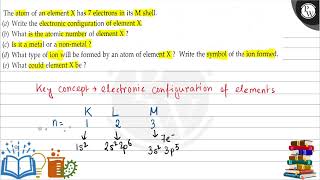 The atom of an element X has 7 electrons in its M shell.
(a) Write the electronic configuration of element X.
(b) What is the atomic number of element X ?
(c) Is it a metal or a non-metal ?
(d) What type of ion will be formed by an atom of element X ? Write the symbol of the ion formed.
(e) What could element X be ?
Key concept → electronic configuration of elements
K L M
n= 1 2 3
7e⁻
1s² 2s² 2p⁶ 3s² 3p⁵